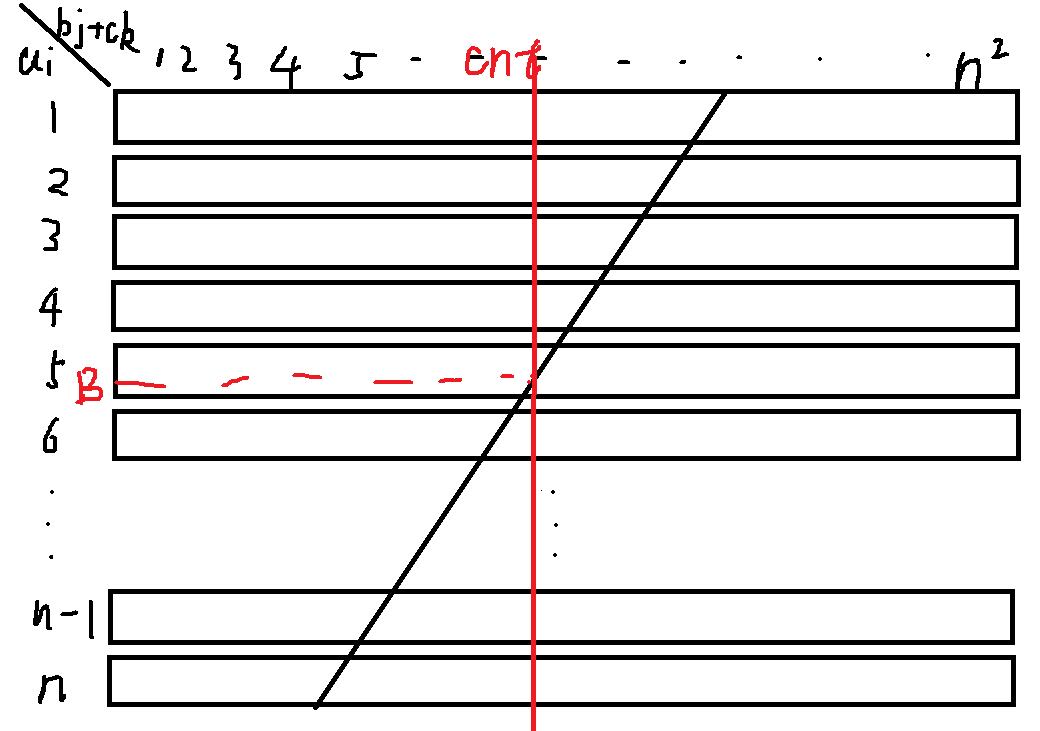 bj+ck
ai 1 2 3 4 5 - cnt - - · · · n²
1
2
3
4
5 B
6
n-1
n